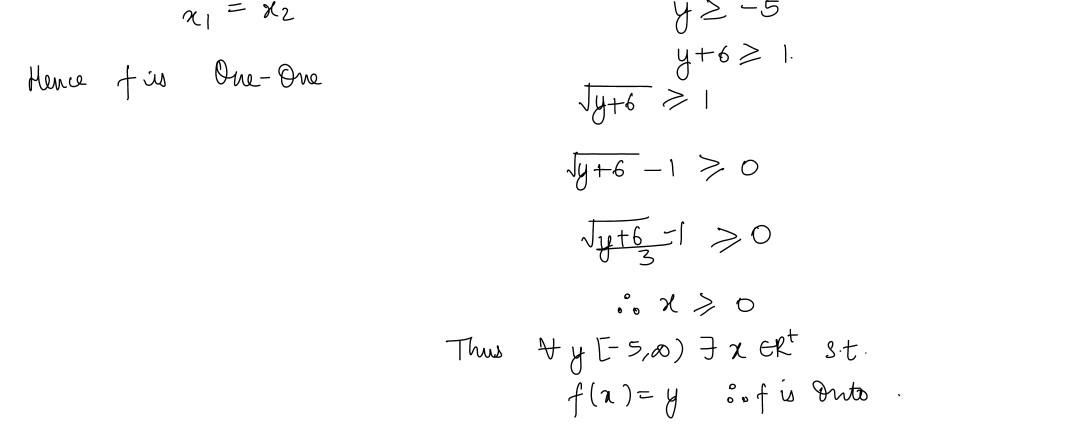 x₁ = x₂
Hence f is One-One
y ≥ -5
y+6 ≥ 1.
√(y+6) ≥ 1
√(y+6) - 1 ≥ 0
(√(y+6) - 1)/3 ≥ 0
∴ x ≥ 0
Thus ∀ y [-5,∞) ∃ x ∈R⁺ s.t.
f(x) = y ∴ f is Onto .